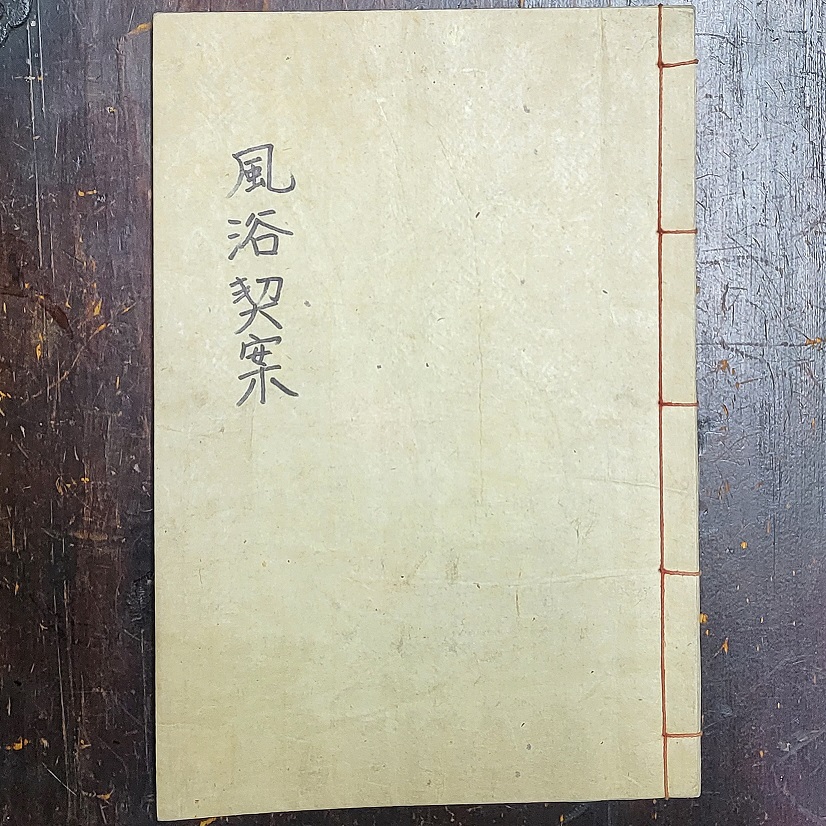 風浴契案